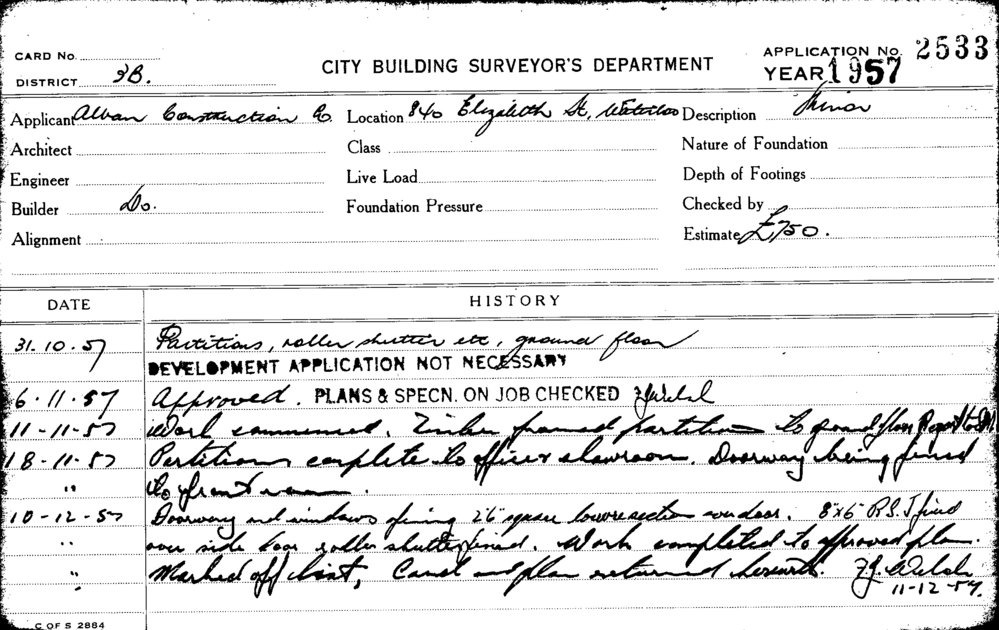 CARD No.
DISTRICT 3B.
CITY BUILDING SURVEYOR'S DEPARTMENT
APPLICATION No. 2533
YEAR 1957
Applicant Alvan Construction Co. Location 840 Elizabeth St, Waterloo Description Minor
Architect Class Nature of Foundation
Engineer Live Load Depth of Footings
Builder Do. Foundation Pressure Checked by
Alignment Estimate £750.
DATE HISTORY
31.10.57 Partitions, roller shutter etc, ground floor
DEVELOPMENT APPLICATION NOT NECESSARY
6.11.57 Approved. PLANS & SPECN. ON JOB CHECKED Welsh
11-11-57 Work commenced. Timber framed partition to ground floor
18-11-57 Partitions complete to office & showroom. Doorway being fixed
" to front room.
10-12-57 Doorway and windows 2'6" square louvre section over door. 8"x6" R.S.J fixed
" over side door roller shutter fixed. Work completed to approved plan.
" Marked off list, Card and plan returned herewith FJ. Welsh
11-12-57.
C OF S 2884